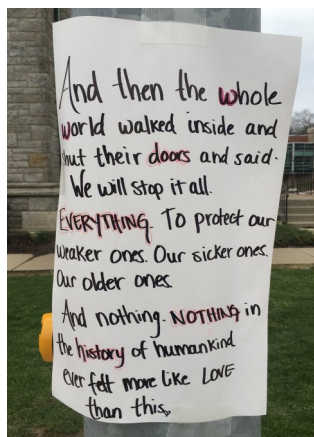 And then the whole
world walked inside and
shut their doors and said.
We will stop it all.
EVERYTHING. To protect our
weaker ones. Our sicker ones.
Our older ones.
And nothing. NOTHING in
the history of humankind
ever felt more like LOVE
than this.